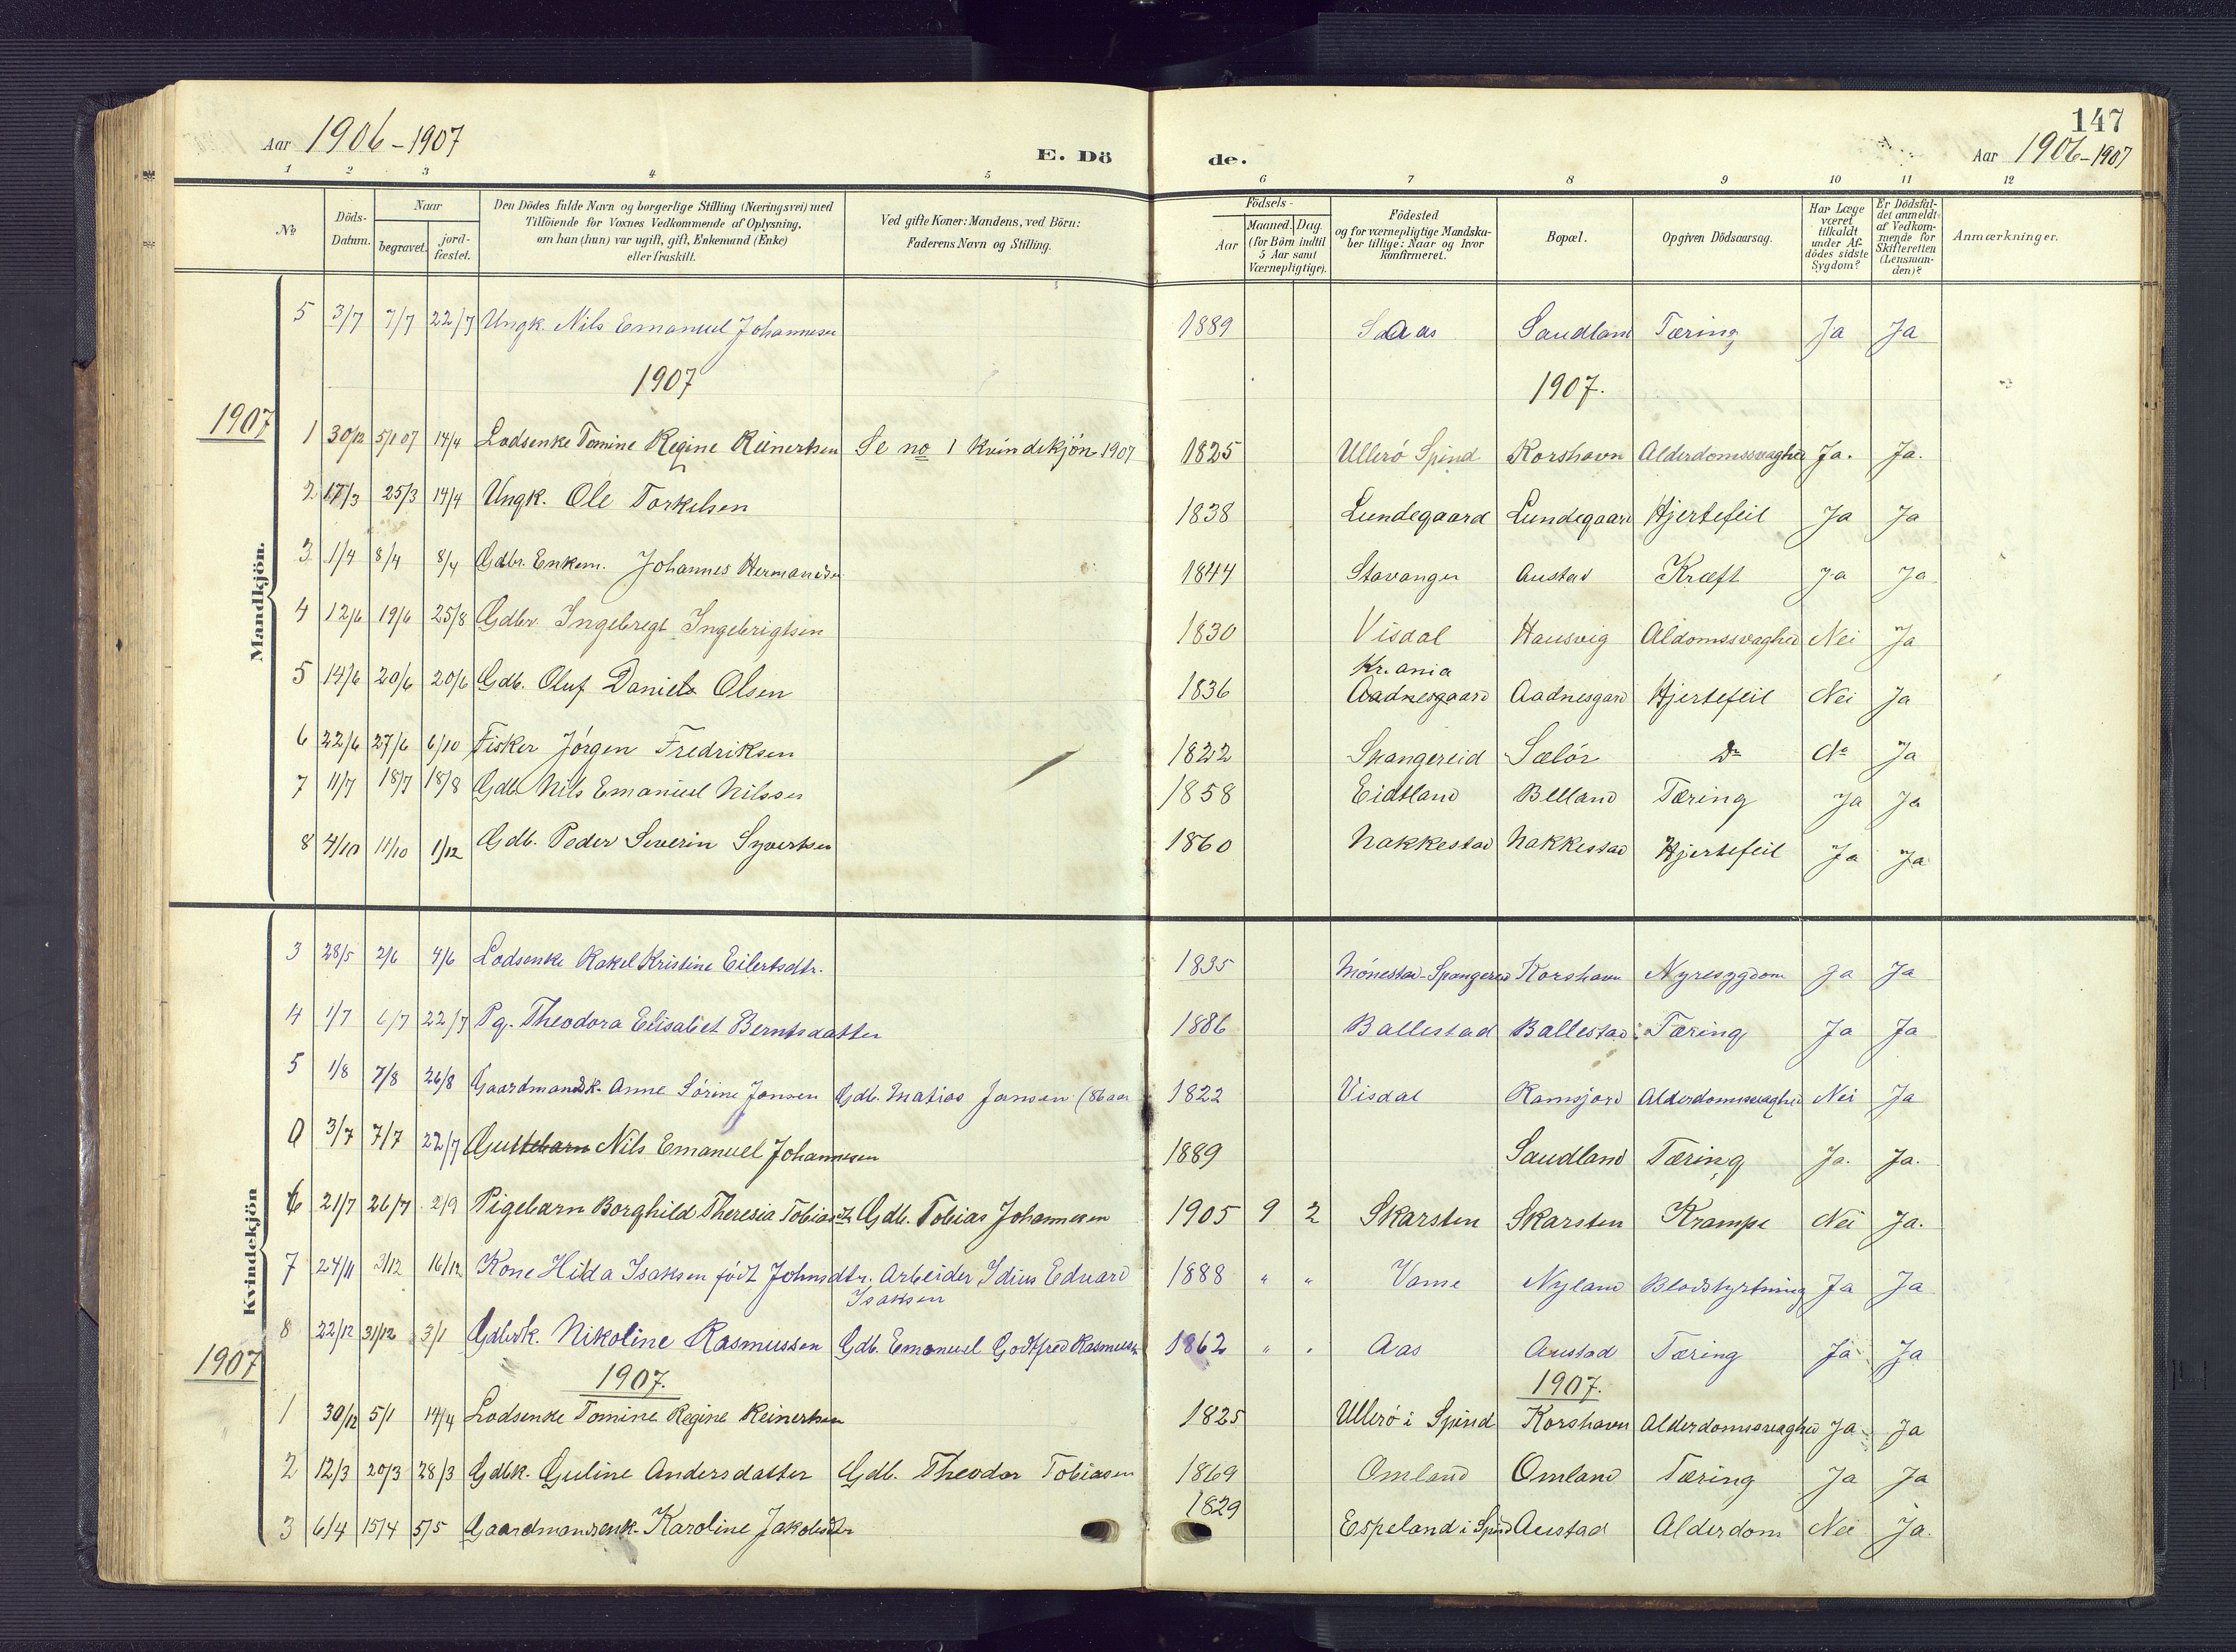 147
Aar 1906-1907
E. Dö
de.
Aar 1906-1907
1 2 3 4 5 6 7 8 9 10 11 12
No
Döds-Datum.
Naar
begravet.
jord-fæstet.
Den Dödes fulde Navn og borgerlige Stilling (Næringsvei) med
Tilföiende for Voxnes Vedkommende af Oplysning,
om han (hun) var ugift, gift, Enkemand (Enke)
eller fraskilt.
Ved gifte Koner: Mandens, ved Börn:
Faderens Navn og Stilling.
Födsels-
Aar
Maaned. Dag
(for Börn indtil
5 Aar samt
Værnepligtige).
Födested
og for værnepligtige Mandska-
ber tillige: Naar og hvor
konfirmeret.
Bopæl.
Opgiven Dödsaarsag.
Har Læge
været
tilkaldt
under Af-
dödes sidste
Sygdom?
Er Dödsfal-
det anmeldt
af Vedkom-
mende for
Skifteretten
(Lensman-
den)?
Anmærkninger.
Mandkjön.
5 3/7 7/7 22/7 Ungk. Nils Emanuel Johannesen 1889 Aas Saudland Tæring Ja Ja
1907 1907 1907.
1 30/12 5/1 07 14/4 Lodsenke Tomine Regine Reinertsen Se no 1 Kvindekjön 1907 1825 Ullerö Spind Korshavn Alderdomssvaghed Ja. Ja.
2 17/3 25/3 14/4 Ungk. Ole Torkelsen 1838 Lundegaard Lundegaard Hjertefeil Ja Ja
3 1/4 8/4 8/4 Gdbr. Enkem. Johannes Hermandsen 1844 Stavanger Austad Kræft Ja Ja
4 12/6 19/6 25/8 Gdbr. Ingebregt Ingebrigtsen 1830 Visdal Hausvig Aldomssvaghed Nei Ja
5 14/6 20/6 20/6 Gdb. Oluf Daniel Olsen 1836 Kr.ania Aadnesgaard Aadnesgard Hjertefeil Nei Ja
6 22/6 27/6 6/10 Fisker Jörgen Fredriksen 1822 Spangereid Sælör Do do Ja
7 11/7 18/7 18/8 Gdb. Nils Emanuel Nilssen 1858 Eidsland Belland Tæring Ja Ja
8 4/10 11/10 1/12 Gdb. Peder Severin Syvertsen 1860 Nakkestad Nakkestad Hjertefeil Ja Ja
Kvindekjön
3 28/5 2/6 4/6 Lodsenke Rakel Kristine Eilertsdtr. 1835 Mönestad-Spangereid Korshavn Nyresygdom Ja Ja
4 1/7 6/7 22/7 Pg. Theodora Elisabet Berntsdatter 1886 Ballestad Ballestad Tæring Ja Ja
5 1/8 7/8 26/8 Gaardmandsk. Anne Sörine Jansen Gdb. Matias Jansen (86 aar 1822 Visdal Ramsjord Alderdomssvaghed Nei Ja
0 3/7 7/7 22/7 Guttebarn Nils Emanuel Johannesen 1889 Saudland Tæring Ja. Ja.
6 21/7 26/7 2/9 Pigebarn Borghild Theresia Tobiasdtr Gdb. Tobias Johannesen 1905 9 2 Skarsten Skarsten Krampe Nei Ja.
7 24/11 3/12 16/12 Kone Hilda Isaksen födt Johnsdtr. Arbeider Idius Eduard 1888 " " Vame Nyland Blodstyrtning Ja Ja
Isaksen
8 22/12 31/12 3/1 Gdbrk. Nikoline Rasmussen Gdb. Emanuel Godtfred Rasmussen 1862 " " Aas Austad Tæring Ja Ja
1907 1907. 1907.
1 30/12 5/1 14/4 Lodsenke Tomine Regine Reinertsen 1825 Ullerö i Spind Korshavn Alderdomssvaghed Ja Ja
2 12/3 20/3 28/3 Gdbk. Guline Andersdatter Gdb. Theodor Tobiasen 1869 Omland Omland Tæring Ja Ja
3 6/4 15/4 5/5 Gaardmandsenk. Karoline Jakobsdtr 1829 Espeland i Spind Austad Alderdom Nei Ja.